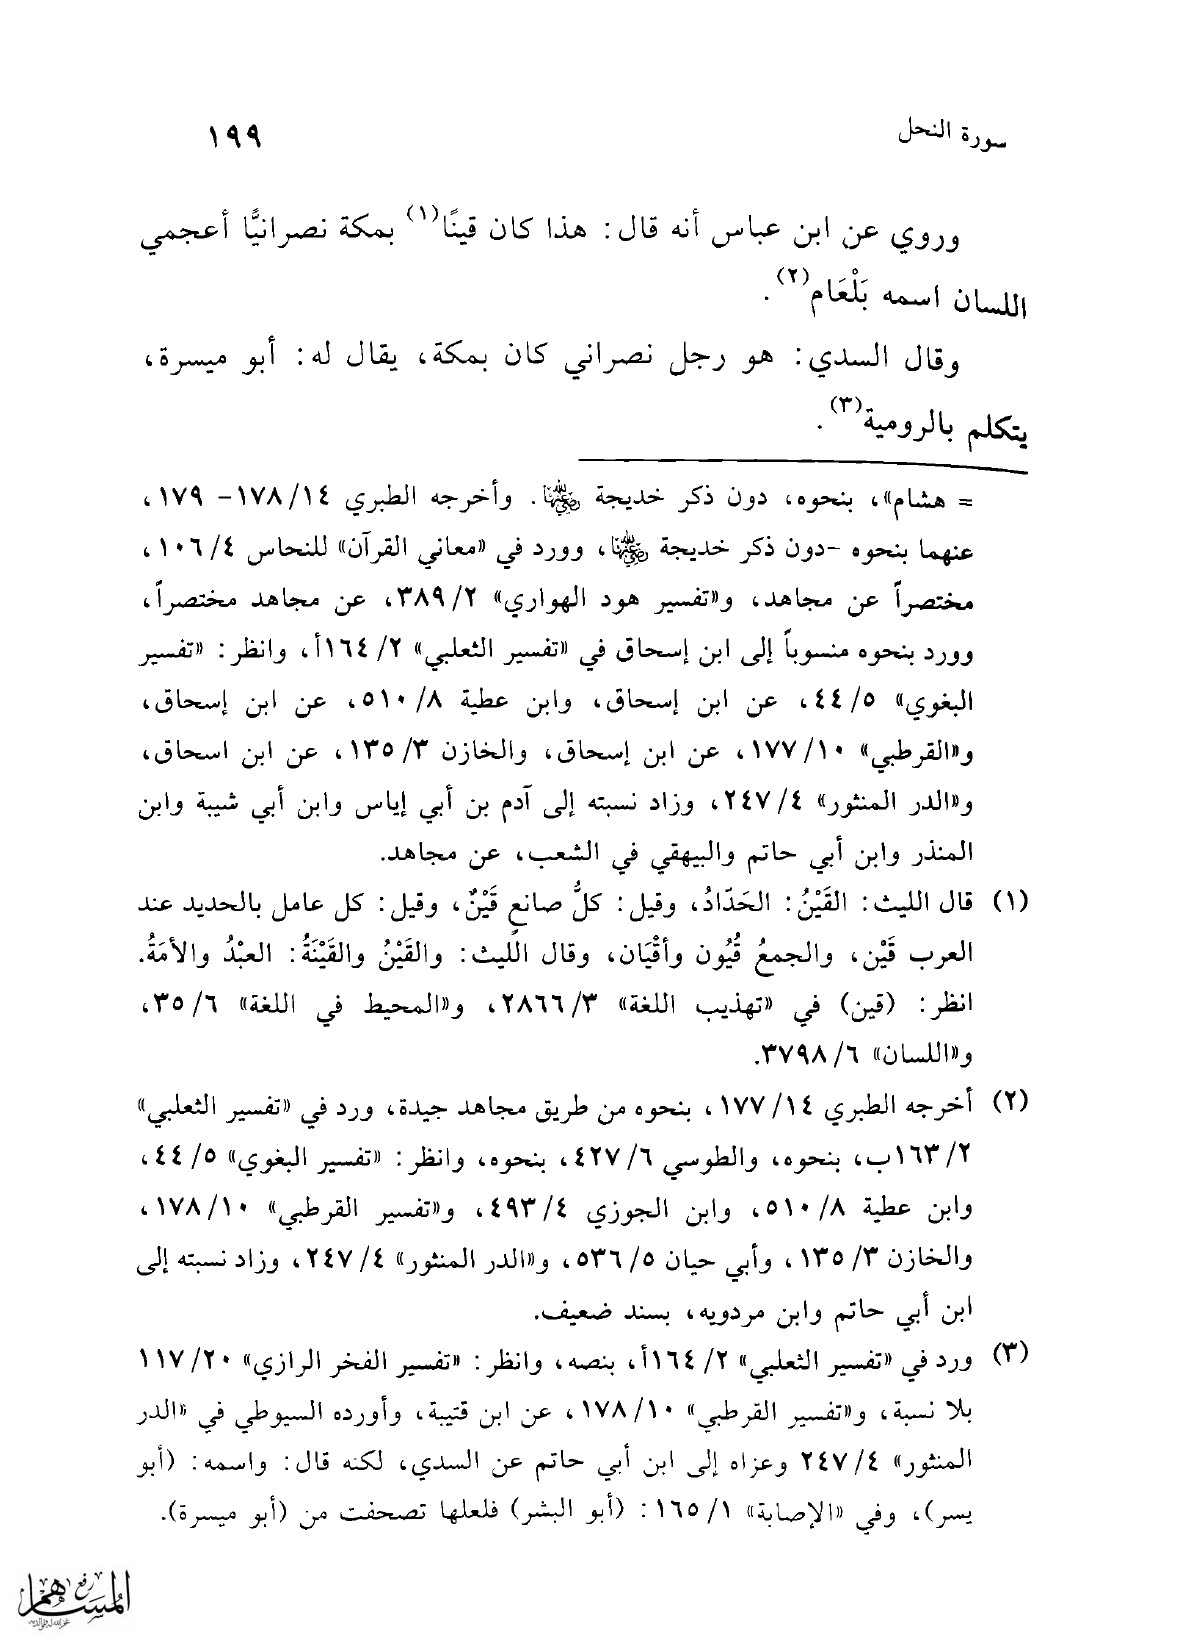 سورة النحل
١٩٩
وروي عن ابن عباس أنه قال: هذا كان قينًا(١) بمكة نصرانيًّا أعجمي
اللسان اسمه بَلْعَام(٢).
وقال السدي: هو رجل نصراني كان بمكة، يقال له: أبو ميسرة،
يتكلم بالرومية(٣).
= هشام»، بنحوه، دون ذكر خديجة رضي الله عنها. وأخرجه الطبري ١٤/ ١٧٨- ١٧٩،
عنهما بنحوه -دون ذكر خديجة رضي الله عنها، وورد في «معاني القرآن» للنحاس ٤/ ١٠٦،
مختصراً عن مجاهد، و«تفسير هود الهواري» ٢/ ٣٨٩، عن مجاهد مختصراً،
وورد بنحوه منسوباً إلى ابن إسحاق في «تفسير الثعلبي» ٢/ ١٦٤أ، وانظر: «تفسير
البغوي» ٥/ ٤٤، عن ابن إسحاق، وابن عطية ٨/ ٥١٠، عن ابن إسحاق،
و«القرطبي» ١٠/ ١٧٧، عن ابن إسحاق، والخازن ٣/ ١٣٥، عن ابن اسحاق،
و«الدر المنثور» ٤/ ٢٤٧، وزاد نسبته إلى آدم بن أبي إياس وابن أبي شيبة وابن
المنذر وابن أبي حاتم والبيهقي في الشعب، عن مجاهد.
(١) قال الليث: القَيْنُ: الحَدّادُ، وقيل: كلُّ صانعٍ قَيْنٌ، وقيل: كل عامل بالحديد عند
العرب قَيْن، والجمعُ قُيُون وأقْيَان، وقال الليث: والقَيْنُ والقَيْنَةُ: العبْدُ والأمَةُ.
انظر: (قين) في «تهذيب اللغة» ٣/ ٢٨٦٦، و«المحيط في اللغة» ٦/ ٣٥،
و«اللسان» ٦/ ٣٧٩٨.
(٢) أخرجه الطبري ١٤/ ١٧٧، بنحوه من طريق مجاهد جيدة، ورد في «تفسير الثعلبي»
٢/ ١٦٣ب، بنحوه، والطوسي ٦/ ٤٢٧، بنحوه، وانظر: «تفسير البغوي» ٥/ ٤٤،
وابن عطية ٨/ ٥١٠، وابن الجوزي ٤/ ٤٩٣، و«تفسير القرطبي» ١٠/ ١٧٨،
والخازن ٣/ ١٣٥، وأبي حيان ٥/ ٥٣٦، و«الدر المنثور» ٤/ ٢٤٧، وزاد نسبته إلى
ابن أبي حاتم وابن مردويه، بسند ضعيف.
(٣) ورد في «تفسير الثعلبي» ٢/ ١٦٤أ، بنصه، وانظر: «تفسير الفخر الرازي» ٢٠/ ١١٧
بلا نسبة، و«تفسير القرطبي» ١٠/ ١٧٨، عن ابن قتيبة، وأورده السيوطي في «الدر
المنثور» ٤/ ٢٤٧ وعزاه إلى ابن أبي حاتم عن السدي، لكنه قال: واسمه: (أبو
يسر)، وفي «الإصابة» ١/ ١٦٥: (أبو البشر) فلعلها تصحفت من (أبو ميسرة).
رفع
المساهم